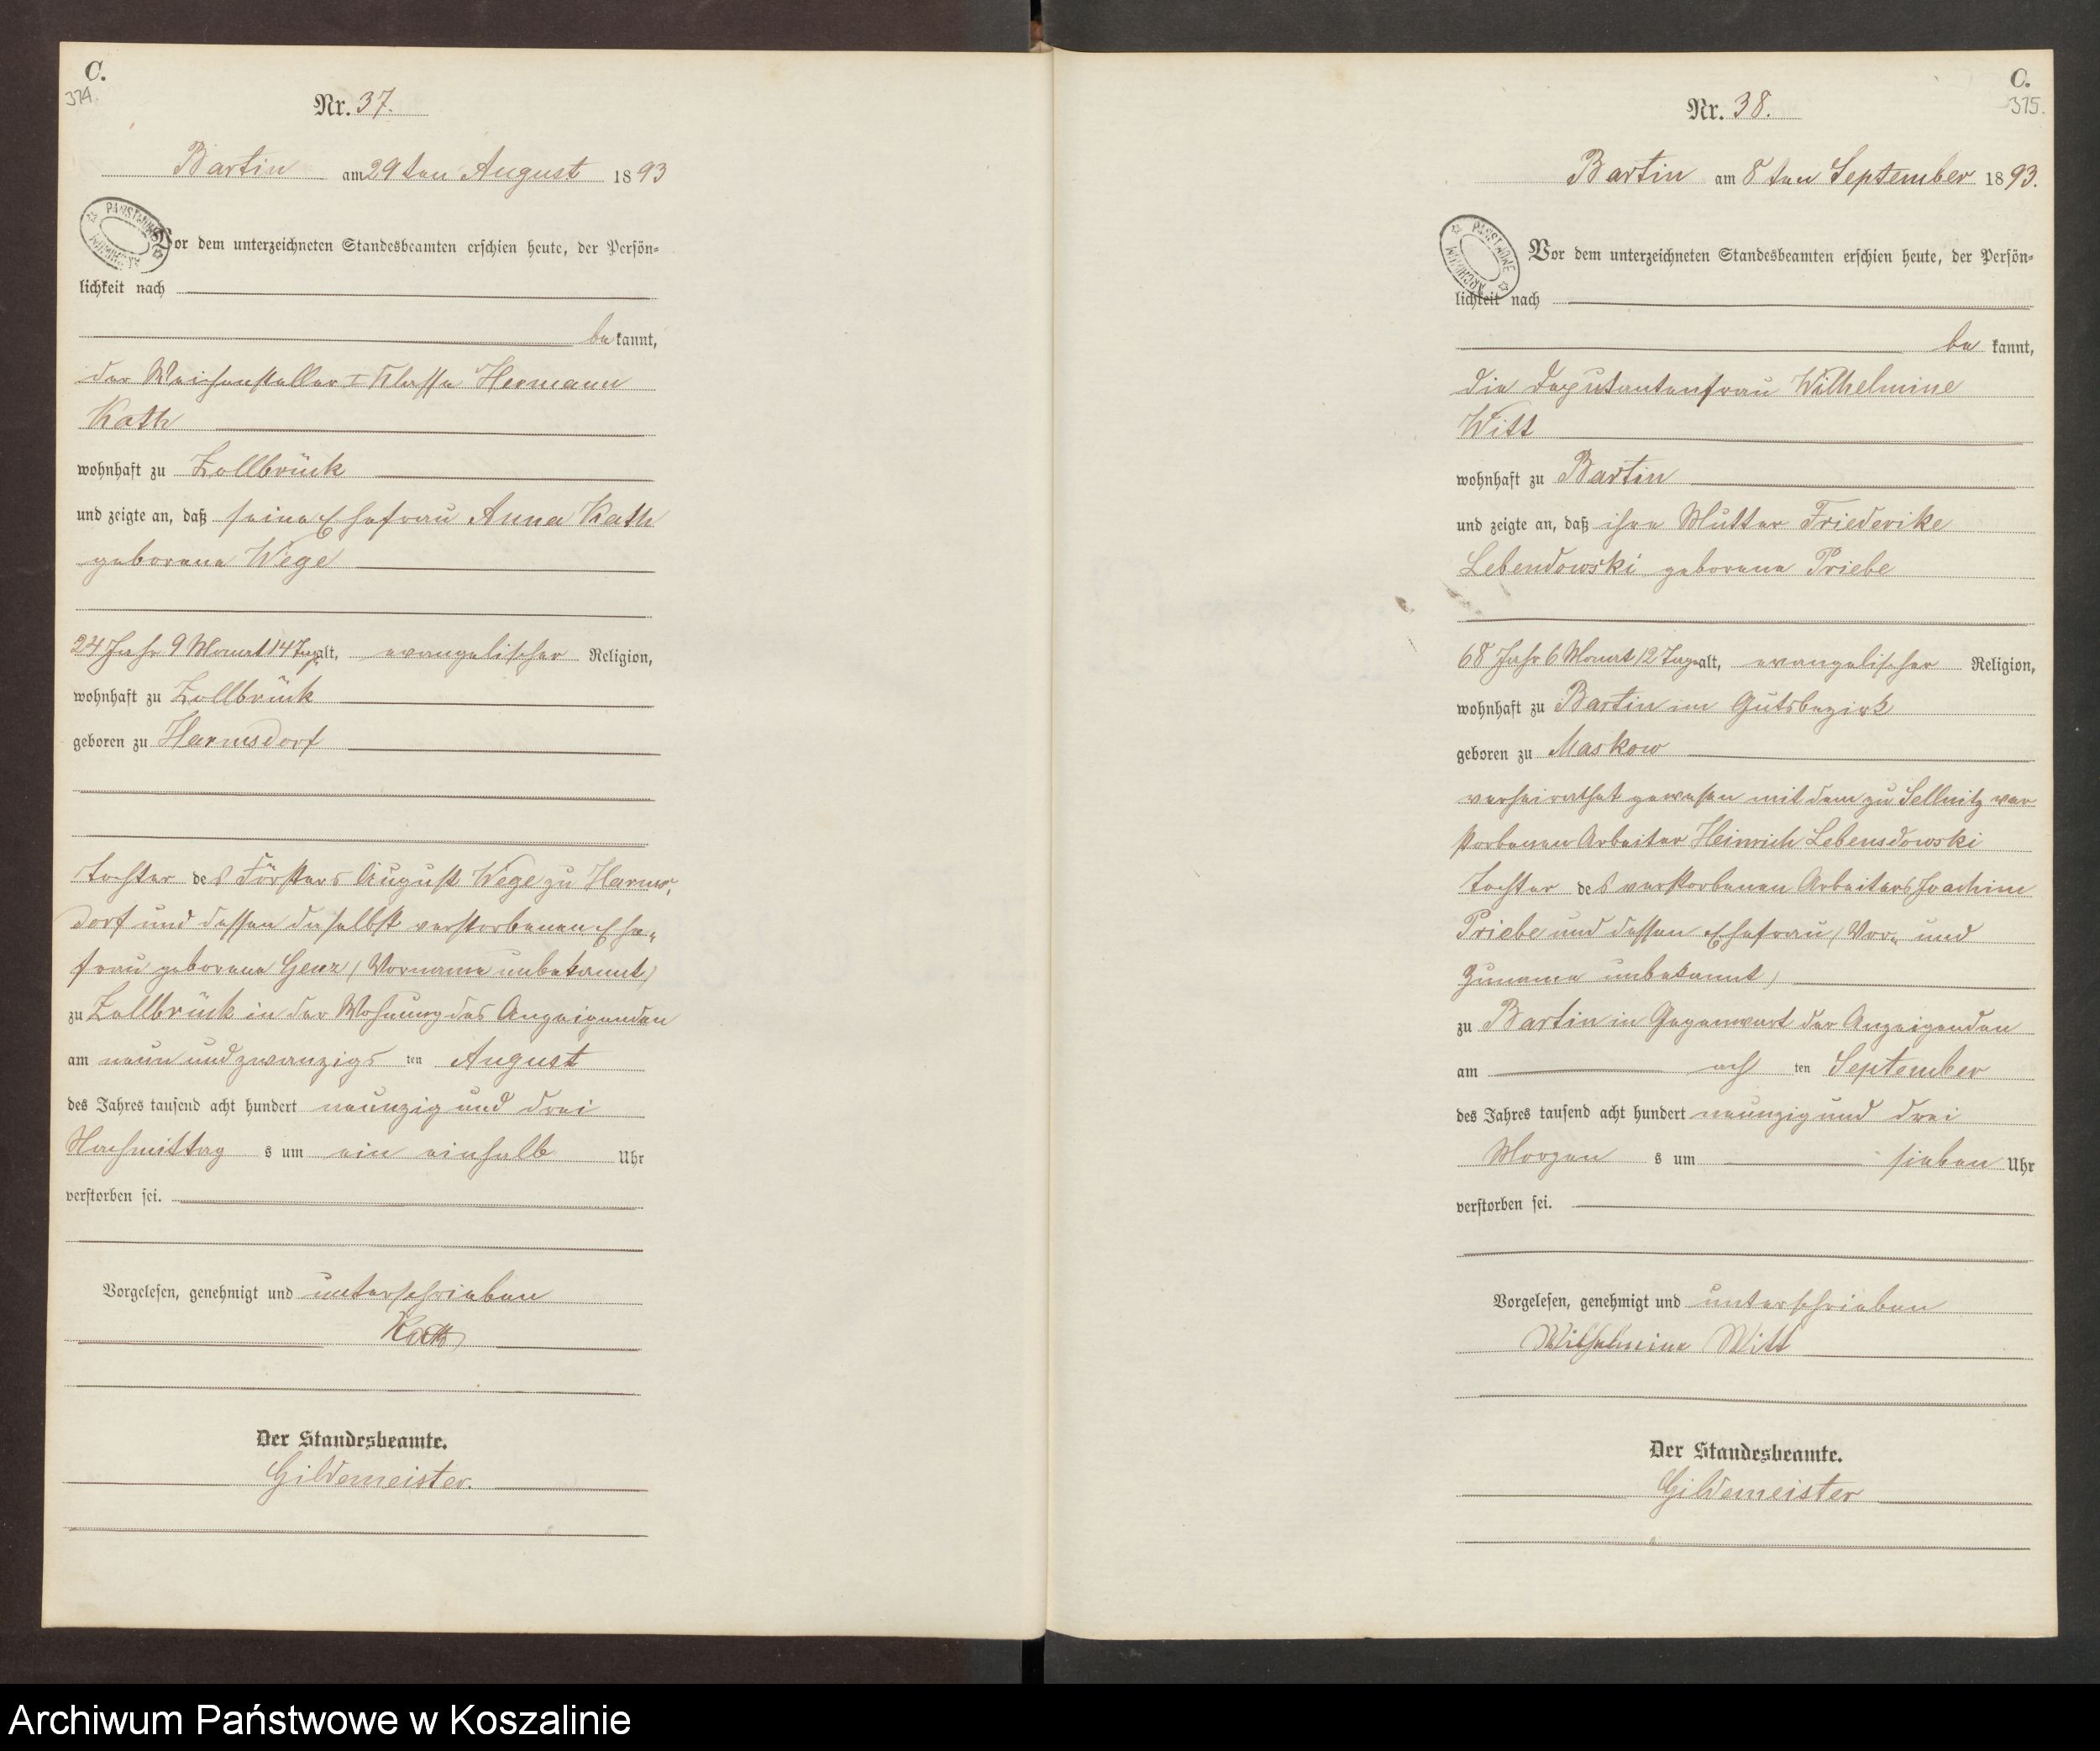 C.
374.
Nr. 37.
Bartin am 29ten August 1893
PAŃSTWOWE ARCHIWUM
Vor dem unterzeichneten Standesbeamten erschien heute, der Persön=
lichkeit nach
bekannt,
der Weichensteller I Klasse Hermann
Kath
wohnhaft zu Zollbrück
und zeigte an, daß seine Ehefrau Anna Kath
geborene Wege
24 Jahr 9 Monat 14 Tage alt, evangelischer Religion,
wohnhaft zu Zollbrück
geboren zu Harmsdorf
Tochter des Försters August Wege zu Harms-
dorf und dessen daselbst verstorbenen Ehe-
frau geborene Genz (Vorname unbekannt)
zu Zollbrück in der Wohnung des Anzeigenden
am neun und zwanzigsten August
des Jahres tausend acht hundert neunzig und drei
Nachmittags um ein einhalb Uhr
verstorben sei.
Vorgelesen, genehmigt und unterschrieben
Kath
Der Standesbeamte.
Gildemeister.
C.
375.
Nr. 38.
Bartin am 8ten September 1893.
PAŃSTWOWE ARCHIWUM
Vor dem unterzeichneten Standesbeamten erschien heute, der Persön=
lichkeit nach
be kannt,
die Deputantenfrau Wilhelmine
Witt
wohnhaft zu Bartin
und zeigte an, daß ihre Mutter Friederike
Lebendowski geborene Priebe
68 Jahr 6 Monat 12 Tage alt, evangelischer Religion,
wohnhaft zu Bartin im Gutsbezirk
geboren zu Maskow
verheirathet gewesen mit dem zu Sellnitz ver
storbenen Arbeiter Heinrich Lebensdowski
Tochter des verstorbenen Arbeiters Joachim
Priebe und dessen Ehefrau (Vor- und
Zuname unbekannt)
zu Bartin in Gegenwart der Anzeigenden
am achten September
des Jahres tausend acht hundert neunzig und drei
Morgens um sieben Uhr
verstorben sei.
Vorgelesen, genehmigt und unterschrieben
Wilhelmine Witt
Der Standesbeamte.
Gildemeister
Archiwum Państwowe w Koszalinie